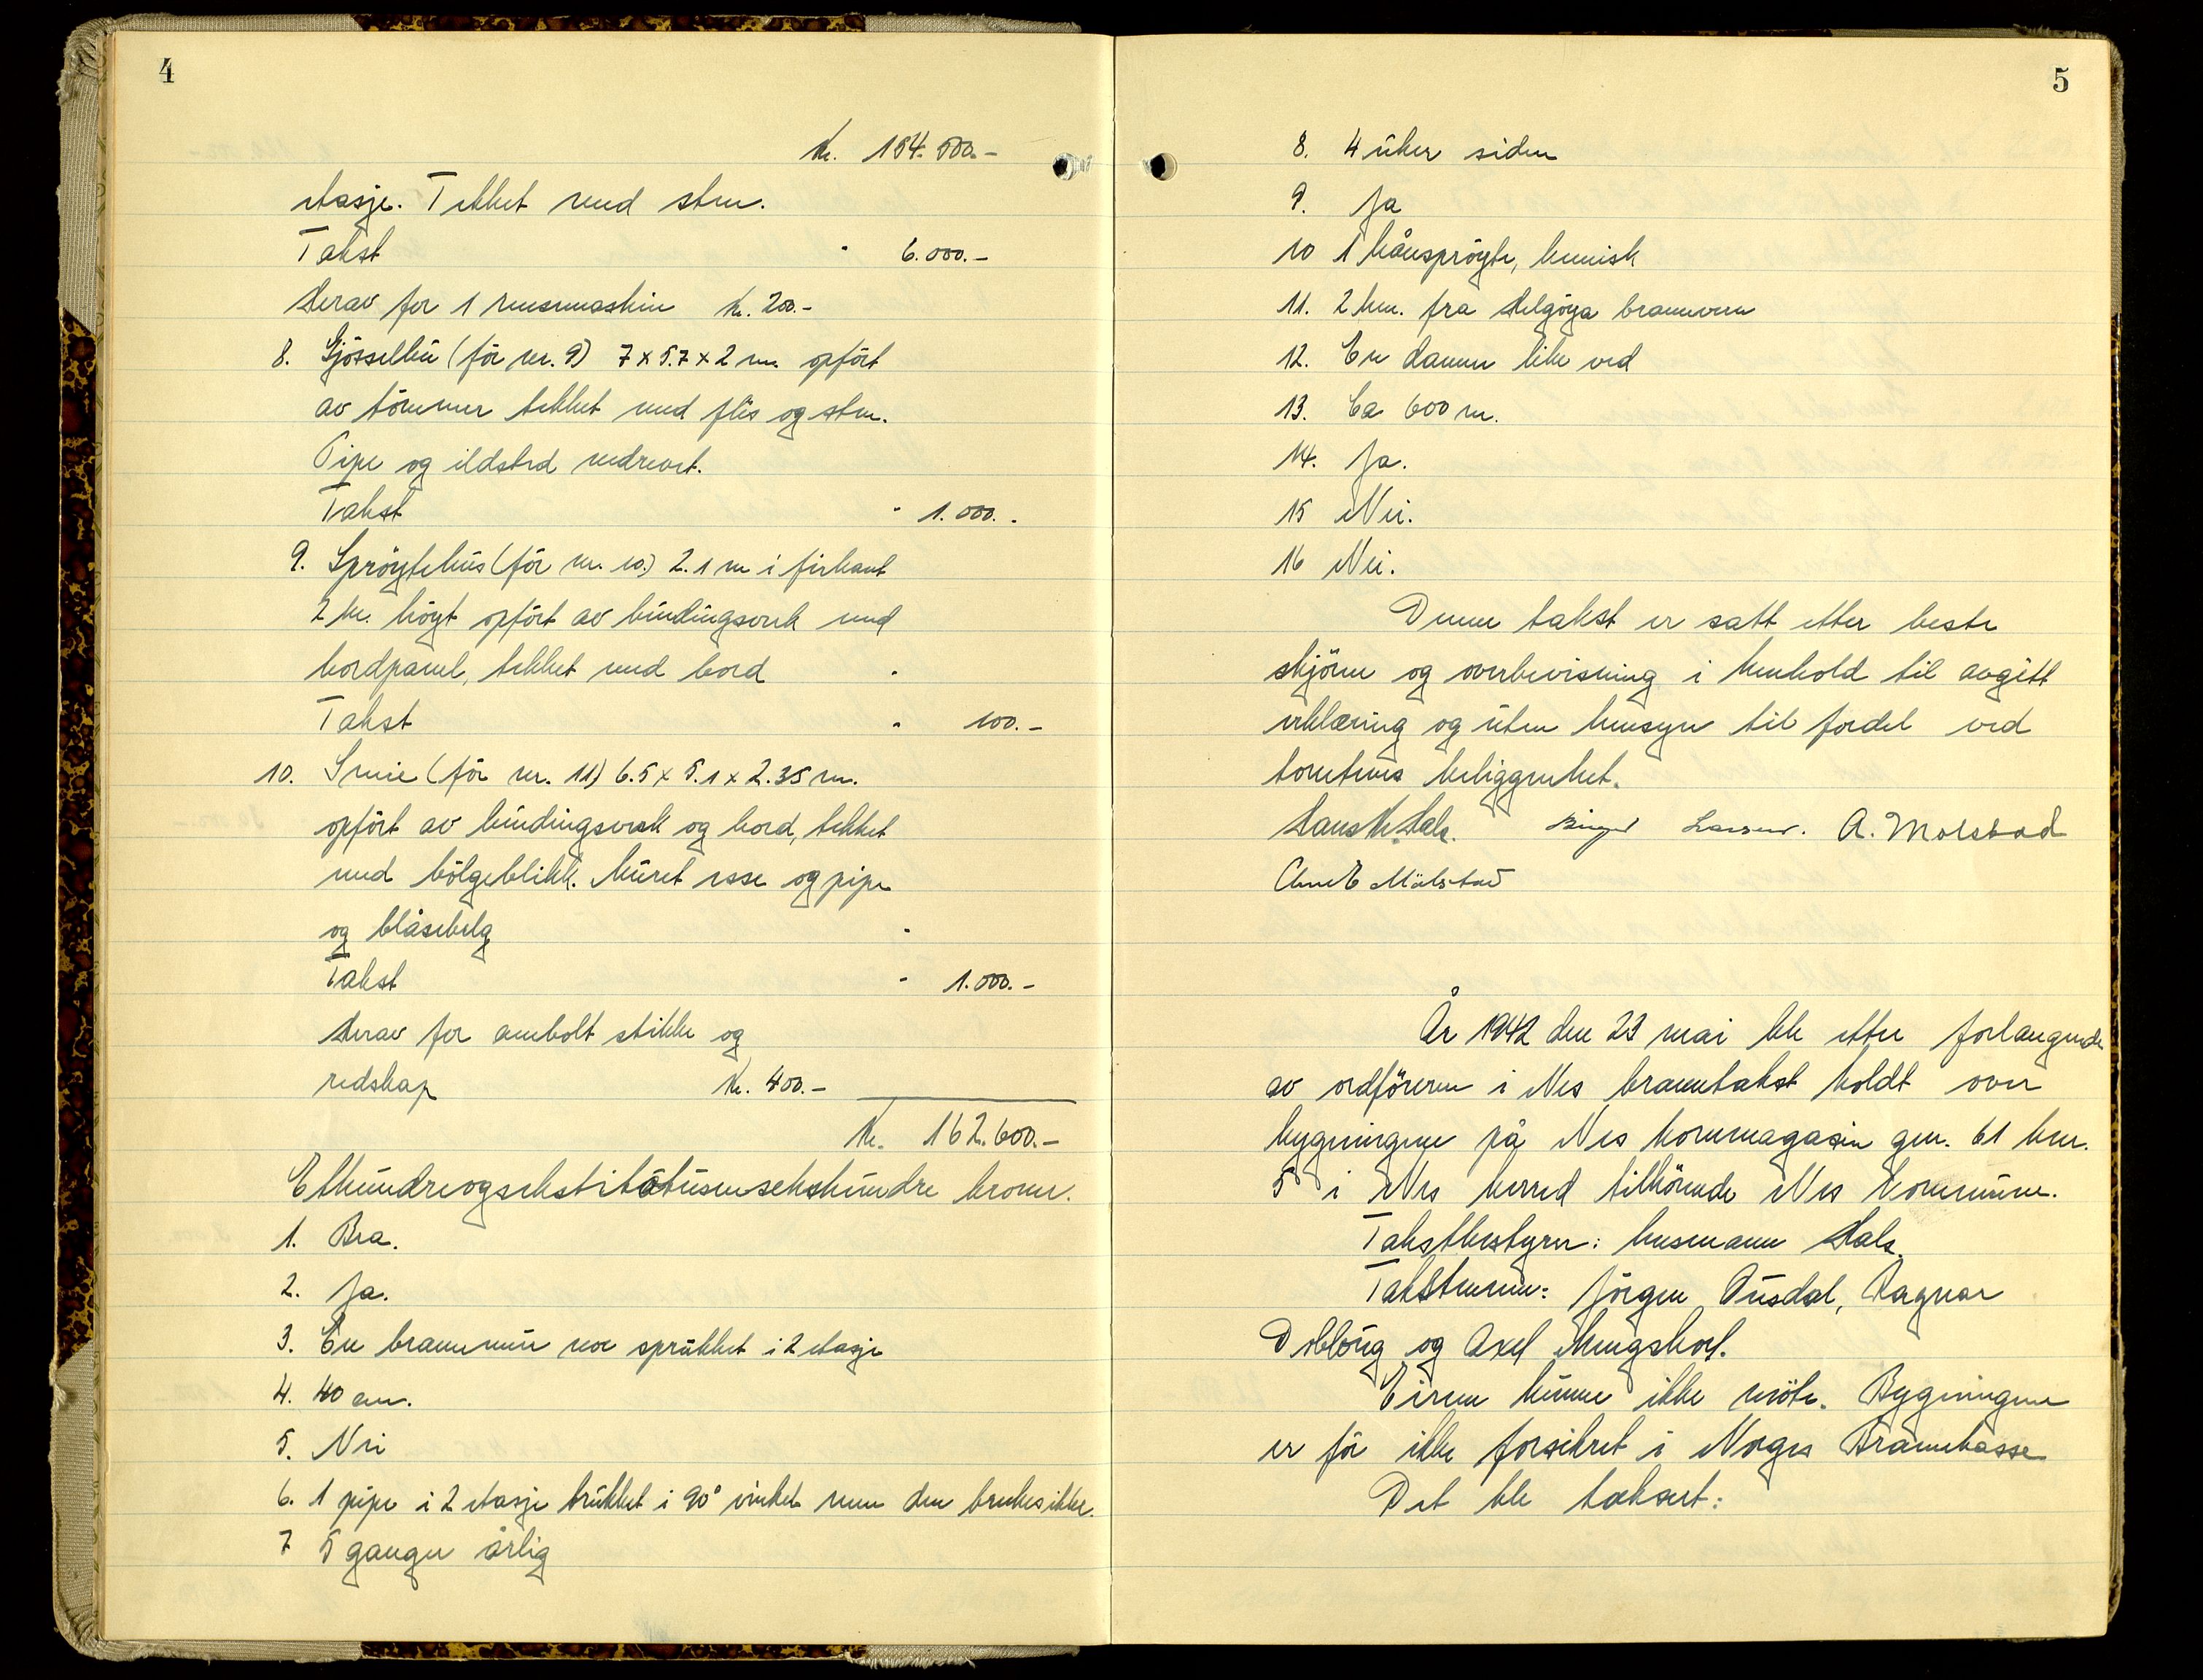 4
Kr. 154.500.-
etasje. Tekket med sten.
Takst " 6.000.-
Herav for 1 rensemaskin Kr. 200.-
8. Gjösselhus (för nr. 9) 7 x 5.7 x 2 m. opfört
av tömmer tekket med flis og sten.
Pipe og ildsted nedrevet.
Takst " 1.000.-
9. Spröytehus (för nr. 10.) 2.1 m i firkant
2 m. höyt opfört av bindingsverk med
bordpanel, tekket med bord "
Takst " 100.-
10. Smie (för nr. 11) 6.5 x 5.1 x 2.35 m.
opfört av bindingsverk og bord, tekket
med bölgeblikk. Muret esse og pipe
og blåsebelg "
Takst " 1.000.-
Herav for ambolt stikke og
redskap Kr. 400.-
Kr. 162.600.-
Etthundreogsekstitotusensekshundre kroner.
1. Bra.
2. Ja.
3. En brannmur noe sprukket i 2 etasje
4. 40 cm.
5. Nei
6. 1 pipe i 2 etasje trukket i 90° vinkel men den brukes ikke.
7 5 ganger årlig
5
8. 4 uker siden
9. Ja
10 1 hånspröyte, kemisk
11. 2 km. fra Helgöya brannvern
12. En damm like ved
13. Ca 600 m.
14. Ja.
15 Nei.
16 Nei.
Denne takst er satt etter beste
skjönn og overbevisning i henhold til avgitt
erklæring og uten hensyn til fordel ved
tomtens beliggenhet.
Hans M Hals. Larsen. A. Molstad
Arne E Mælstad
År 1942 den 23 mai ble etter forlangende
av ordföreren i Nes branntakst holdt over
bygningene på Nes kornmagasin gnr. 61 bnr.
5 i Nes herred tilhörende Nes kommune.
Takstbestyrer: lensmann Hals.
Takstmenn: Jörgen Pusdal, Ragnar
Dobloug og Axel Mengshoel.
Eieren kunne ikke möte. Bygningene
er för ikke forsikret i Norges Brannkasse
Det ble taksert: